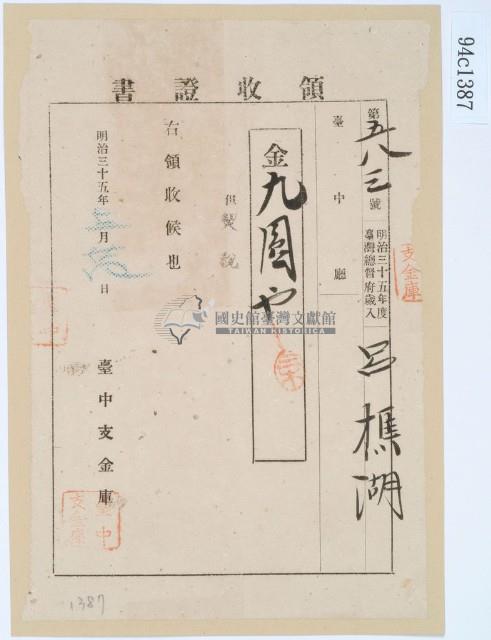 94c1387
領收證書
第五八三號
明治三十五年度
臺灣總督府歲入
呂樵湖
臺中廳
金九圓也
但
稅
右領收候也
明治三十五年
月
日
臺中支金庫
支金庫
臺中
支金庫
國史館臺灣文獻館
TAIWAN HISTORICA
1387